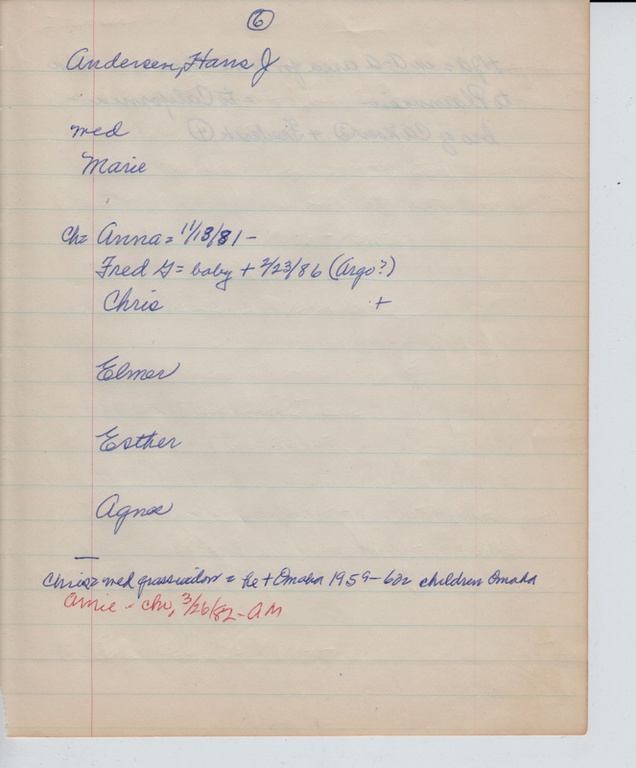 6
Andersen, Hans J
med
Marie
ch= Anna = 11/13/81 -
Fred G = baby + 2/23/86 (Argo?)
Chris +
Elmer
Esther
Agnes
Chris= med grasswidow = he + Omaha 1959-60= children Omaha
Amie - chr, 3/26/82-AM